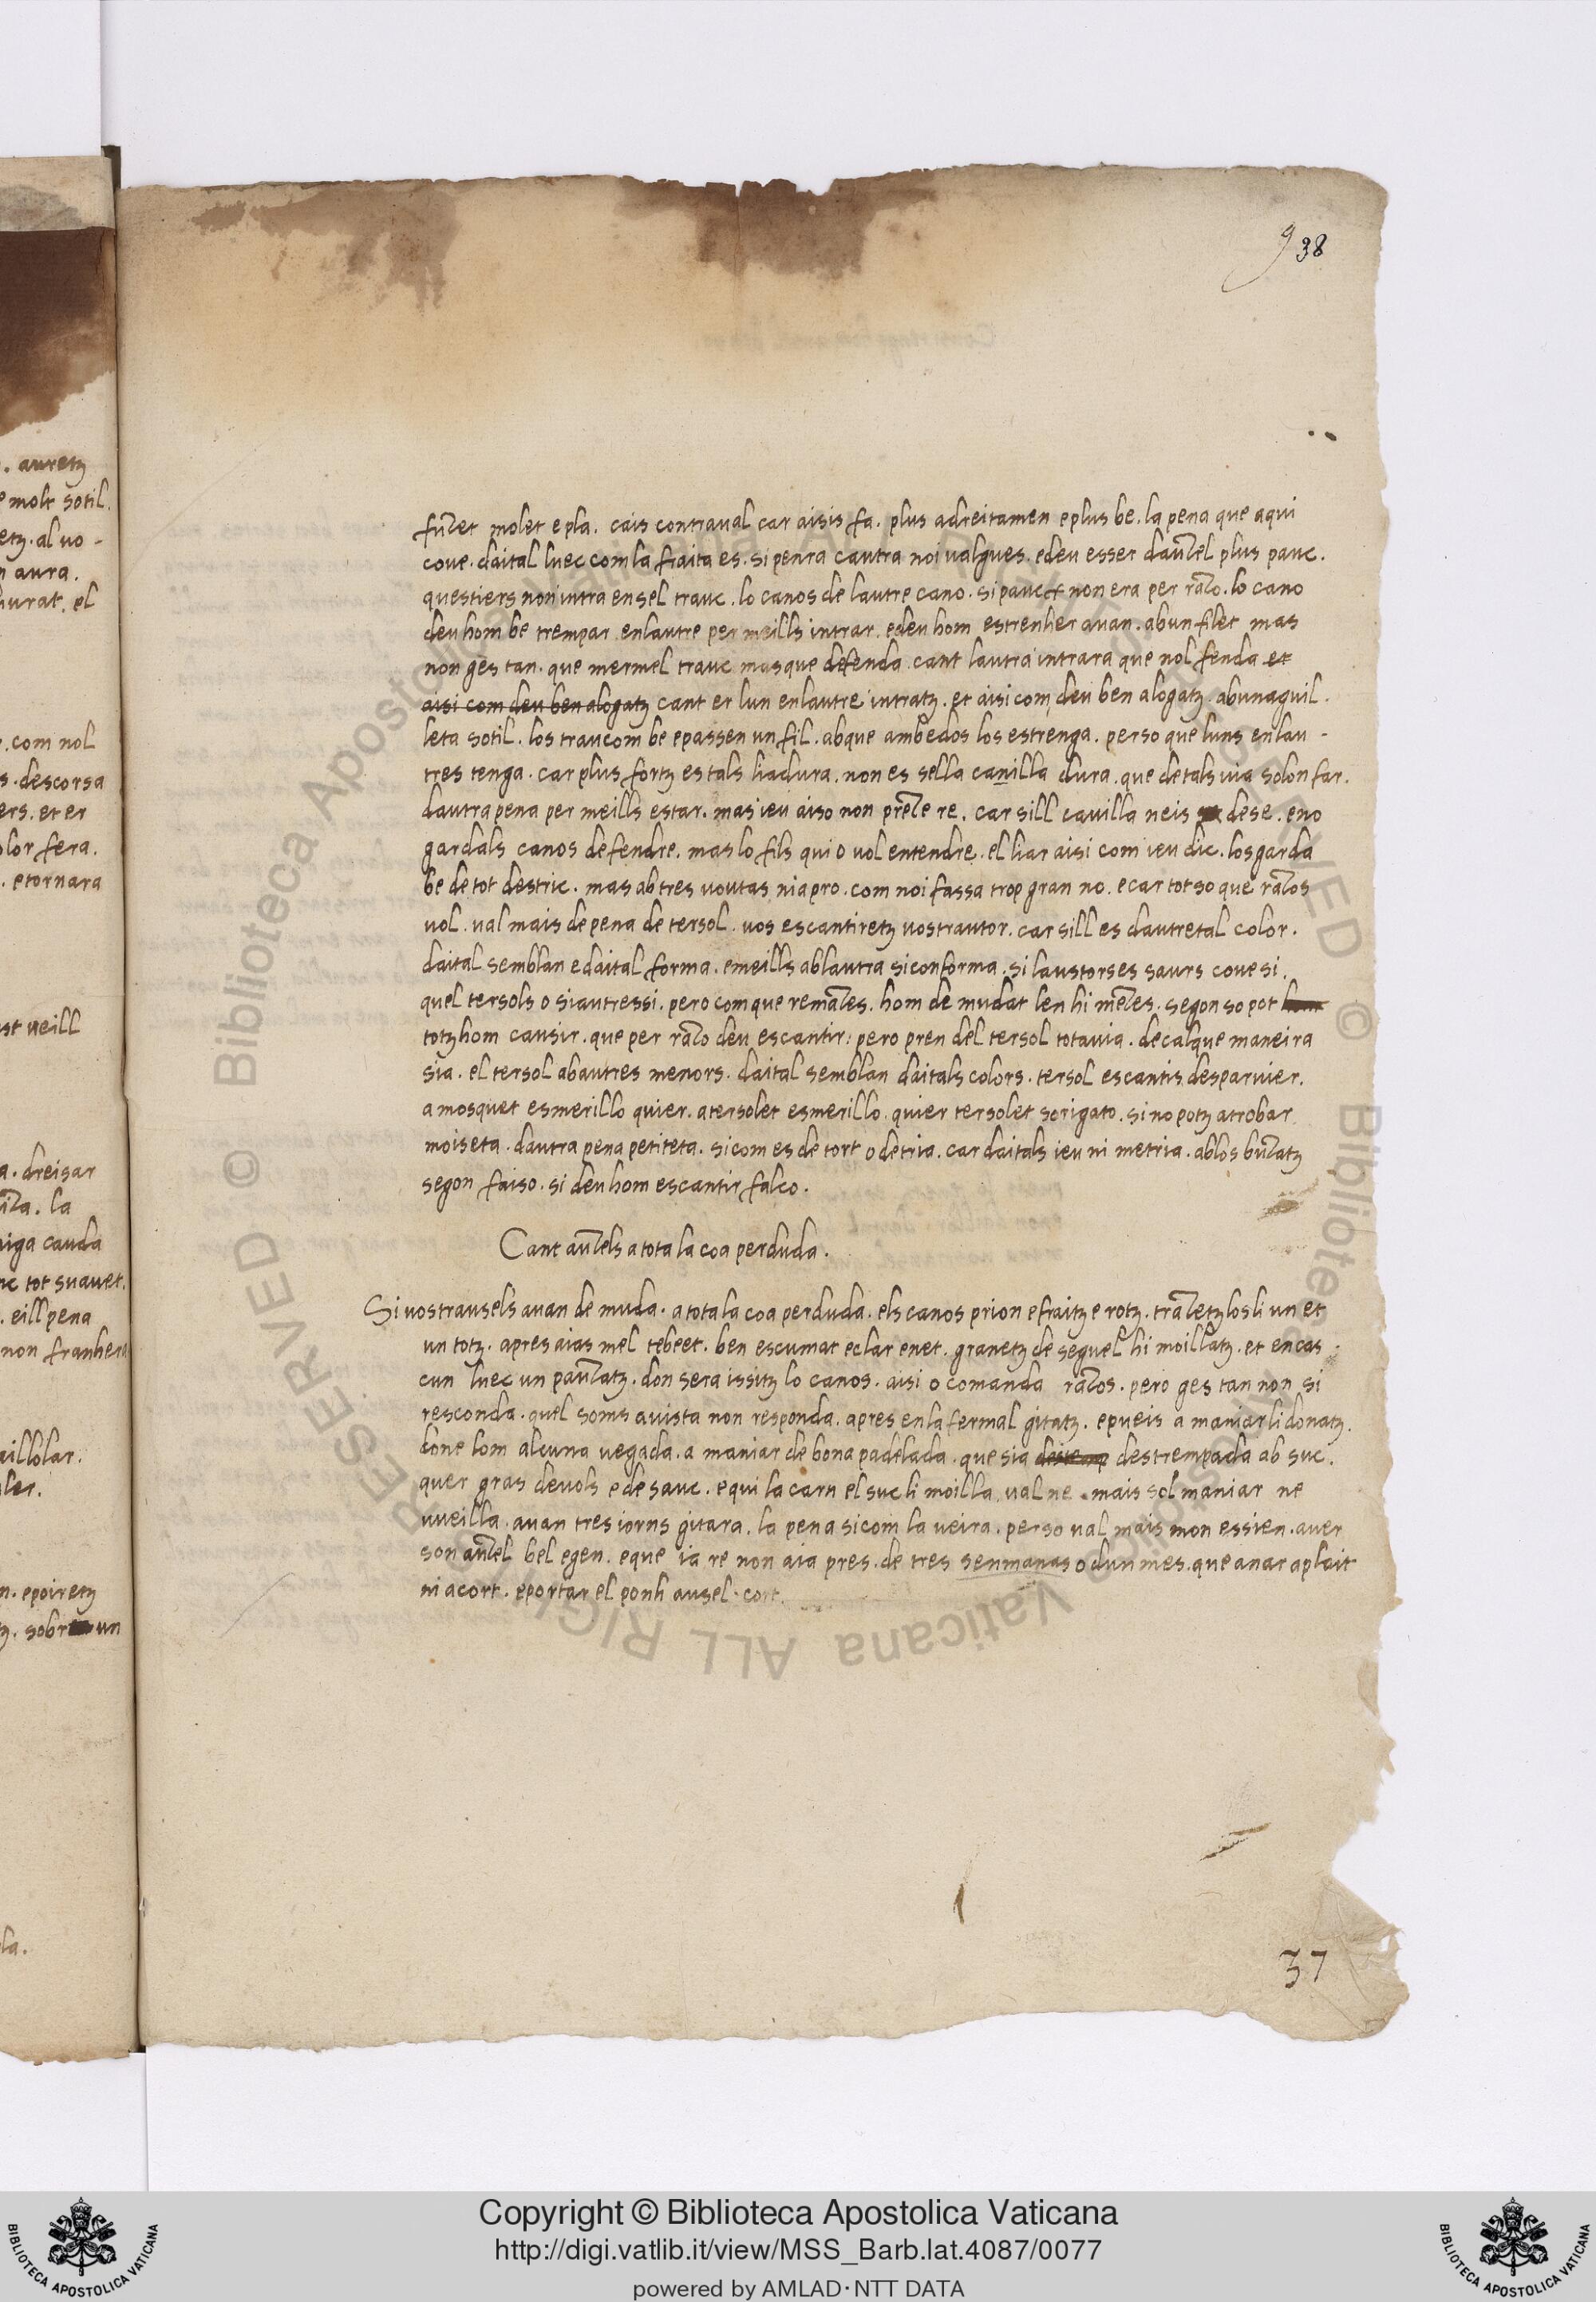 . auretz
e molt sotil.
etz. al uo-
n aura.
urat. el
. com nol
s. descorsa
ers. et er
olor fera.
. etornara
st ueill
a. dreisar
la
iga cauda
nc tot suauet.
. eill pena
non franhera
uillolar.
ler.
n. epoiretz
tz. sobr un
la.
9 38
molet e pla. cais contraual car aisis fa. plus adreitamen eplus be. la pena que aqui
coue. daital luec com la fraita es. si penra cautra noi ualgues. edeu esser dauzel plus pauc.
questiers non intra ensel trauc. lo canos de lautre cano. si pauc non era per razo. lo cano
deu hom be trempar enlautre per meills intrar. edeu hom estrenher auan. abun filet mas
non ges tan. que mermel trauc mas que defenda cant lautra intrara que nol fenda et
aisi com deu ben alogatz cant er lun enlautre intratz. et aisi com deu ben alogatz. abunaguil.
leta sotil. los traucom be epassen un fil. abque ambedos los estrenga. perso que luns enlau-
tres tenga. car plus fortz es tals liadura. non es sella canilla dura. que detals uia solon far.
dautra pena per meills estar. mas ieu aiso non preze re. car sill cauilla neis dese. eno
gardals canos defendre. mas lo fils qui o uol entendre. el liar aisi com ieu dic. los garda
be de tot destric. mas ab tres uoutas ni a pro. com noi fassa trop gran no. e car tot so que razos
uol. ual mais de pena de tersol. uos escantiretz uostrautor. car sill es dautretal color.
daital semblan e daital forma. emeills ablautra si conforma. si laustorses saurs coue si.
quel tersols o si autressi. pero com que remazes. hom de mudat len hi mezes. segon so pot hom
totz hom causir. que per razo deu escantir: pero pren del tersol totauia. de calque maneira
sia. el tersol abautres menors. daital semblan daitals colors. tersol escantis desparuier.
a mosquet esmerillo quier. a tersolet esmerillo. quier tersolet sorigato. si no potz atrobar
moiseta. dautra pena petiteta. si com es de tort o detria. car daitals ieu ni metria. ablos buzatz
segon faiso. si deu hom escantir falco.
Cant auzels a tota la coa perduda.
Si uostrausels auan de muda. a tota la coa perduda. els canos prion e fraitz e rotz. trazetz los li un et
un totz. apres aias mel tebeet. ben escumat e clar enet. granetz de seguel hi moillatz. et en cas.
cun luec un pauzatz. don sera issitz lo canos. aisi o comanda razos. pero ges tan non si
resconda. quel soms auista non responda. apres enla fermal gitatz. e pueis a maniar li donatz.
done lom alcuna uegada. a maniar de bona padelada. que sia destemp destrempada ab suc.
quer gras deuols e de sauc. e qui la carn el suc li moilla. ual ne mais sol maniar ne
uueilla. auan tres iorns gitara. la pena si com la ueira. perso ual mais mon essien. auer
son auzel bel egen. e que ia re non aia pres. de tres senmanas o dun mes. que anar aplait
ni acort. e portar el ponh ausel. cort.
37
Biblioteca Apostolica Vaticana ALL RIGHTS RESERVED ©
Copyright © Biblioteca Apostolica Vaticana
http://digi.vatlib.it/view/MSS_Barb.lat.4087/0077
powered by AMLAD·NTT DATA
BIBLIOTECA APOSTOLICA VATICANA
BIBLIOTECA APOSTOLICA VATICANA